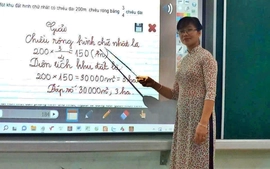 khu đất hình chữ nhật có chiều dài 200m chiều rộng bằng 3/4 chiều dài
Giải
Chiều rộng hình chữ nhật là
200 × 3/4 = 150 (m)
Diện tích khu đất là
200 × 150 = 30 000 m² = 3 ha
Đáp số 30 000 m², 3 ha.